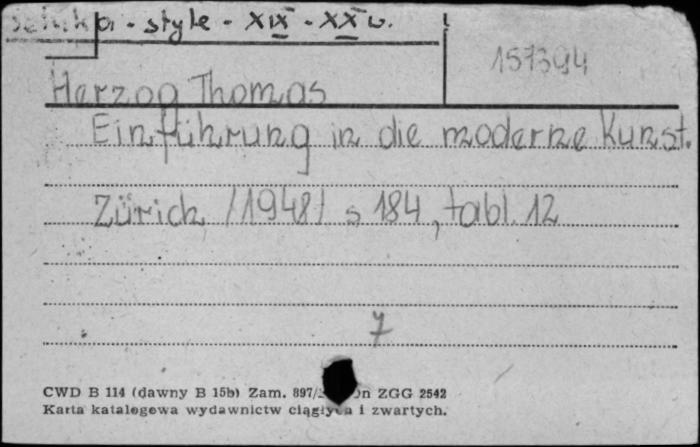 Sztuka - style - XIX - XX w.
157394
Herzog Thomas
Einführung in die moderne Kunst.
Zürich /1948/ s 184, tabl. 12
7
CWD B 114 (dawny B 15b) Zam. 897/ ZGG 2542
Karta katalogowa wydawnictw ciągłych i zwartych.